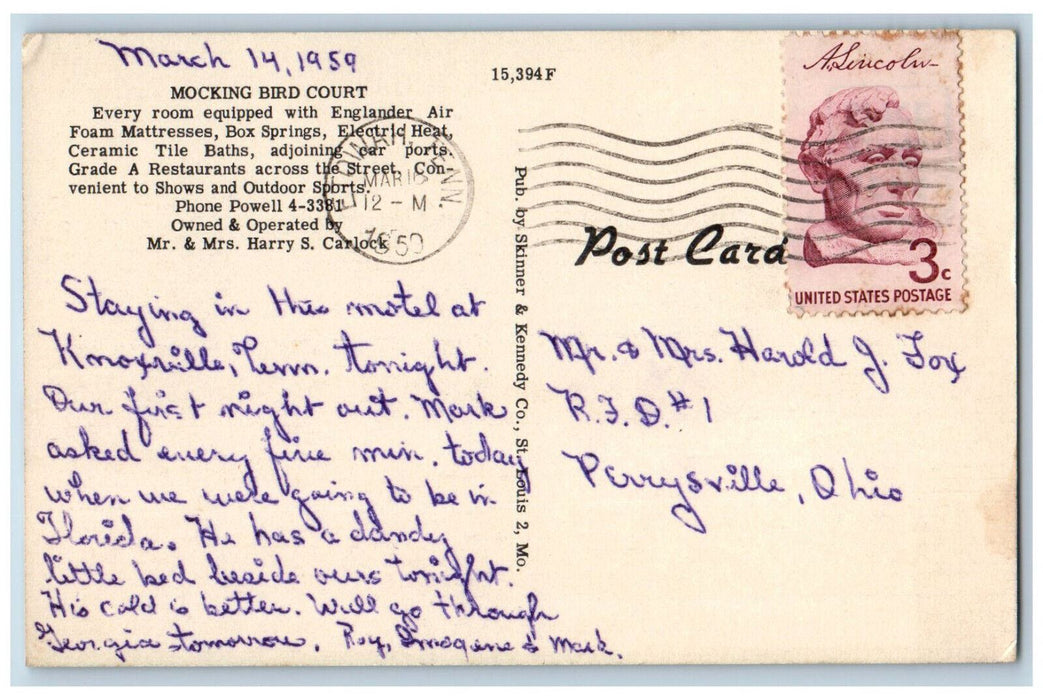 March 14, 1959
15,394F
MOCKING BIRD COURT
Every room equipped with Englander Air
Foam Mattresses, Box Springs, Electric Heat,
Ceramic Tile Baths, adjoining car ports.
Grade A Restaurants across the Street, Con-
venient to Shows and Outdoor Sports.
Phone Powell 4-3381
Owned & Operated by
Mr. & Mrs. Harry S. Carlock
MAR 16
12 - M
1959
TENN.
Staying in this motel at
Knoxville, Tenn. tonight.
Our first night out. Mark
asked every five min. today
when we were going to be in
Florida. He has a dandy
little bed beside ours tonight.
His cold is better. Will go through
Georgia tomorrow. Roy, Imogene & Mark.
Pub. by Skinner & Kennedy Co., St. Louis 2, Mo.
Post Card
A. Lincoln
3c
UNITED STATES POSTAGE
Mr. & Mrs. Harold J. Fox
R.F.D. #1
Perrysville, Ohio